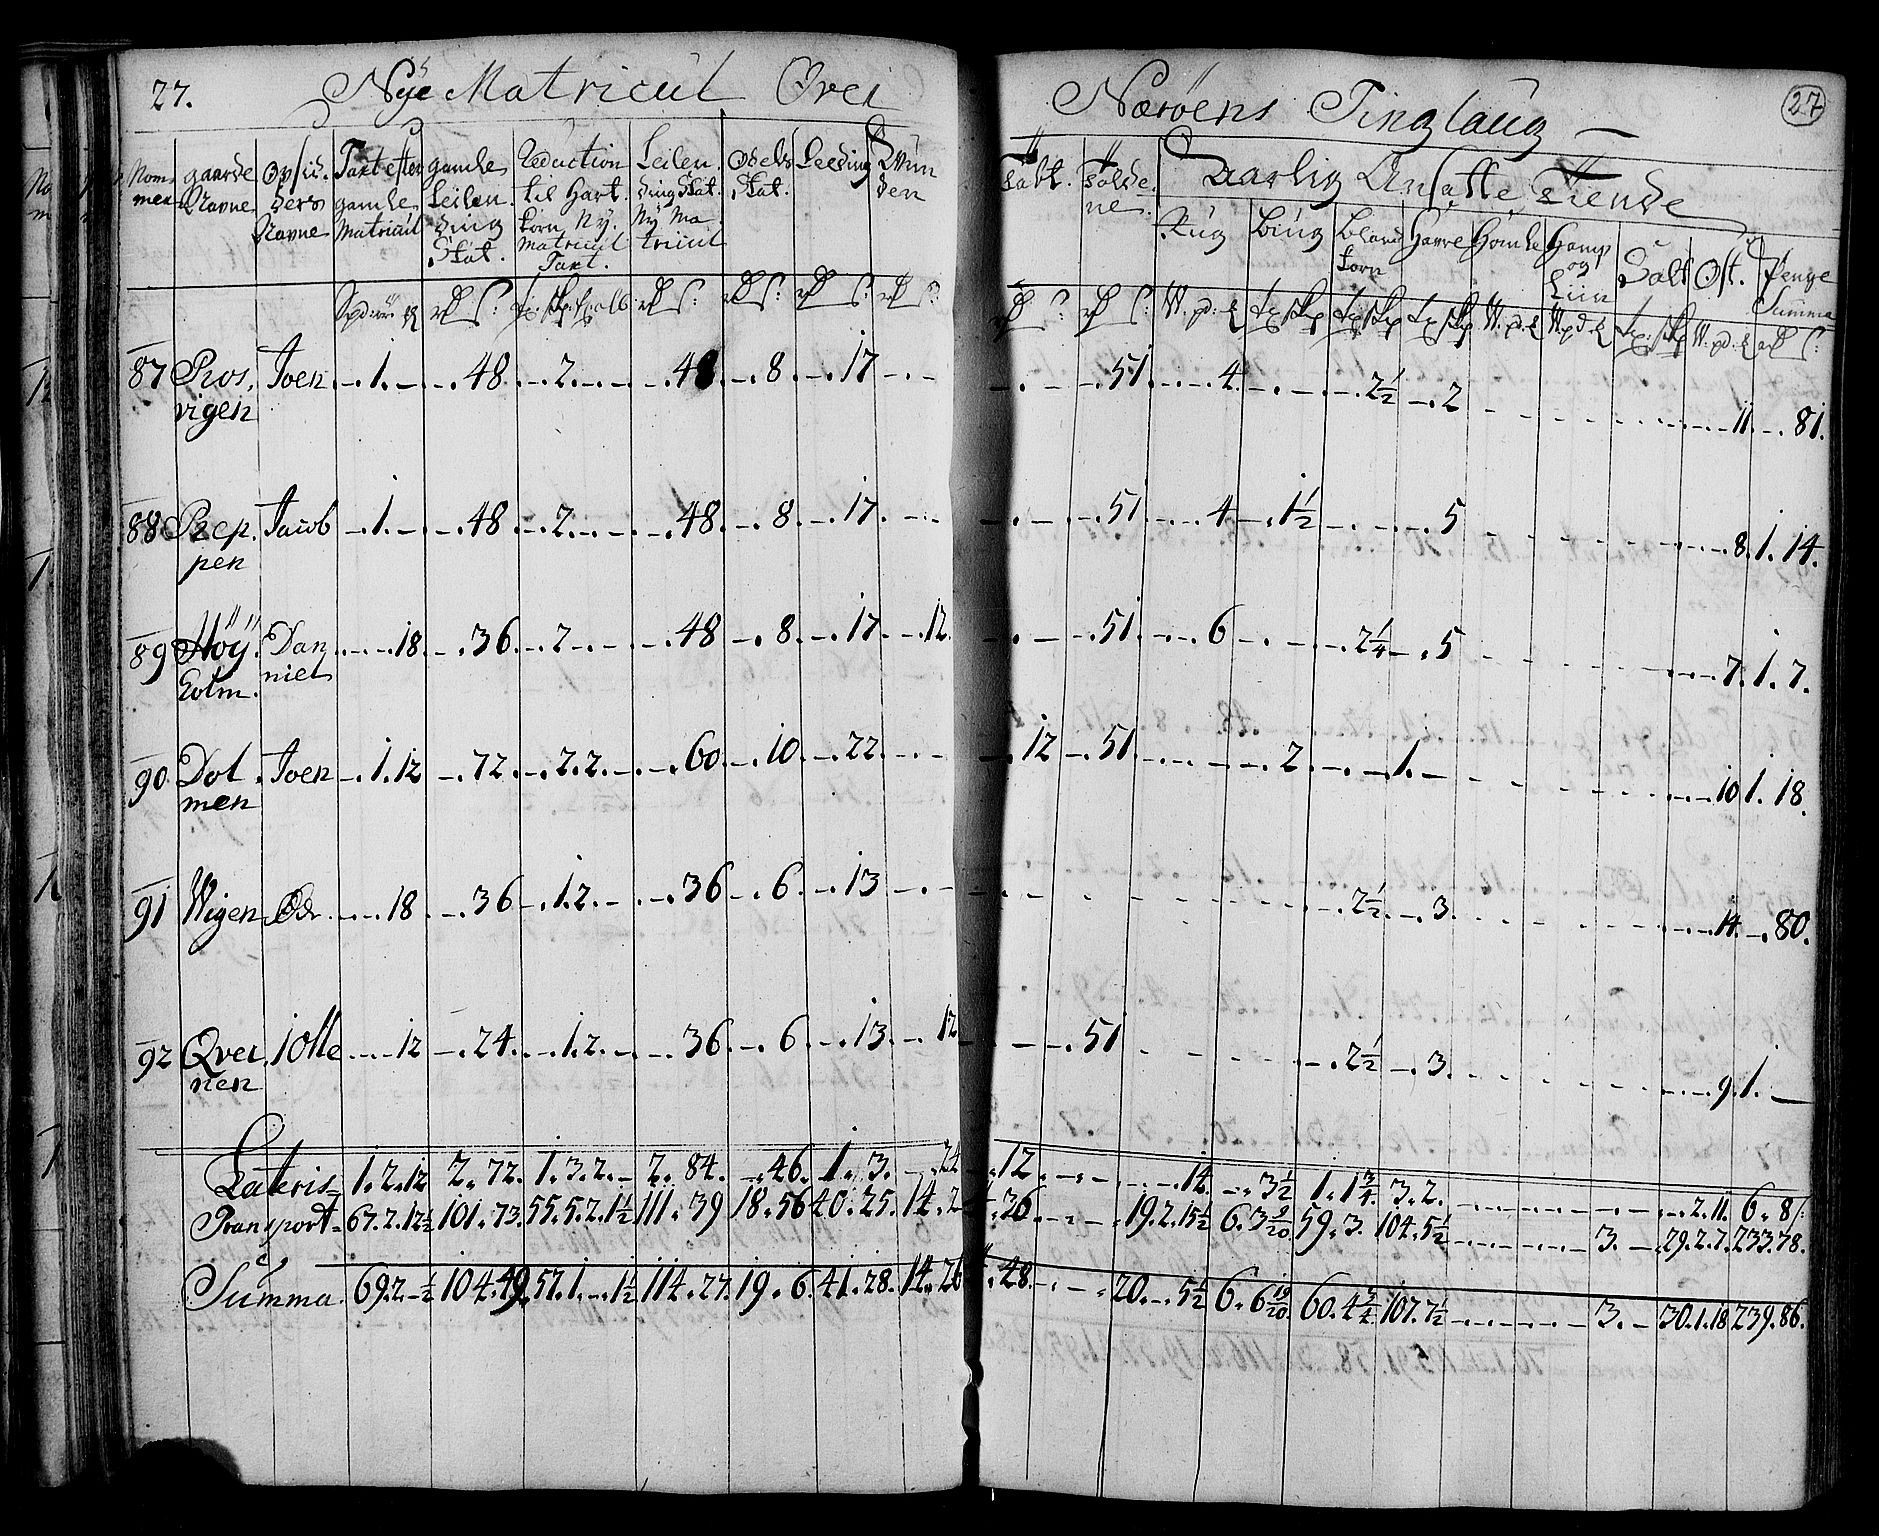 27. Nÿe Matricul Over
Nærøens Tinglaug
27
gaarde Navne
Opsid. ders Navne
Taxt efter gamle Matricul
gamle Leilending Skat.
Reduction til Hart korn Nÿ. matricul Taxt.
Leilending Skat. Nÿ Matricul
Odels Skat.
Leeding
Aarlig Ansatte Tiende
Rug Bÿug Bland korn Havre Homle Hamp og Liin Salt Ost. Penge Summa
87 Ros. vigen Joen . 1. 48. 2. 48 8. 17 51. 4. 2½ 2 11. 81.
88 Rep. pen Jacob 1. 48. 2. 48. 8. 17. 51. 4. 1½ 5 8. 1. 14.
89 Høÿ. holm. Dan niel 18. 36. 2. 48. 8. 17. 12. 51. 6. 2¼ 5 7. 1. 7.
90 Dol men Joen 1. 12 72. 2. 2. 60. 10. 22. 12. 51. 2. 1. 10 1. 18.
91 Wigen Odr. 18. 36. 1. 2. 36. 6. 13. 2½ 3. 14. 80.
92 Qver nen iOlle 12 24. 1. 2. 36. 6. 13. 12 51 2½ 3. 9. 1.
Lateris 1. 2. 12 2. 72. 1. 3. 2. 2. 84. 46. 1. 3. 24 12. 14. 3½ 1. 1¾ 3. 2. 2. 11. 6. 8
Transport 67. 2. 12½ 101. 73. 55. 5. 2. 1½ 111. 39 18. 56 40. 25. 14. 2 36. 19. 2. 15½ 6. 3 9/20 59. 3. 104. 5½ 3. 29. 2. 7. 233. 78.
Summa 69. 2. ½ 104. 49. 57. 1. 1½ 114. 27. 19. 6. 41. 28. 14. 26 48. 20. 5½ 6. 6 19/20 60. 4¾ 107. 7½ 3. 30. 1. 18 239. 86.